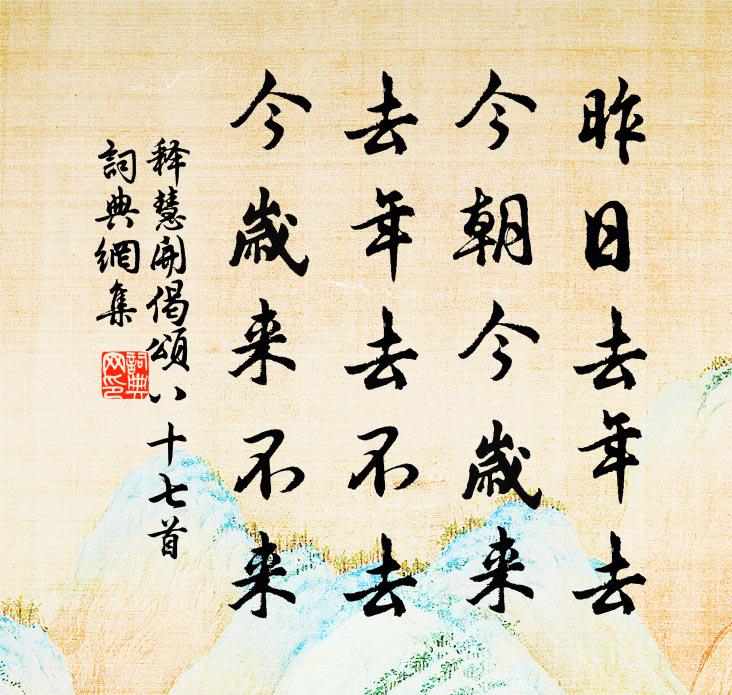 昨日去年去
今朝今歳来
去年去不去
今歳来不来
释慧開偈頌八十七首
詞典網集
詞典
网印